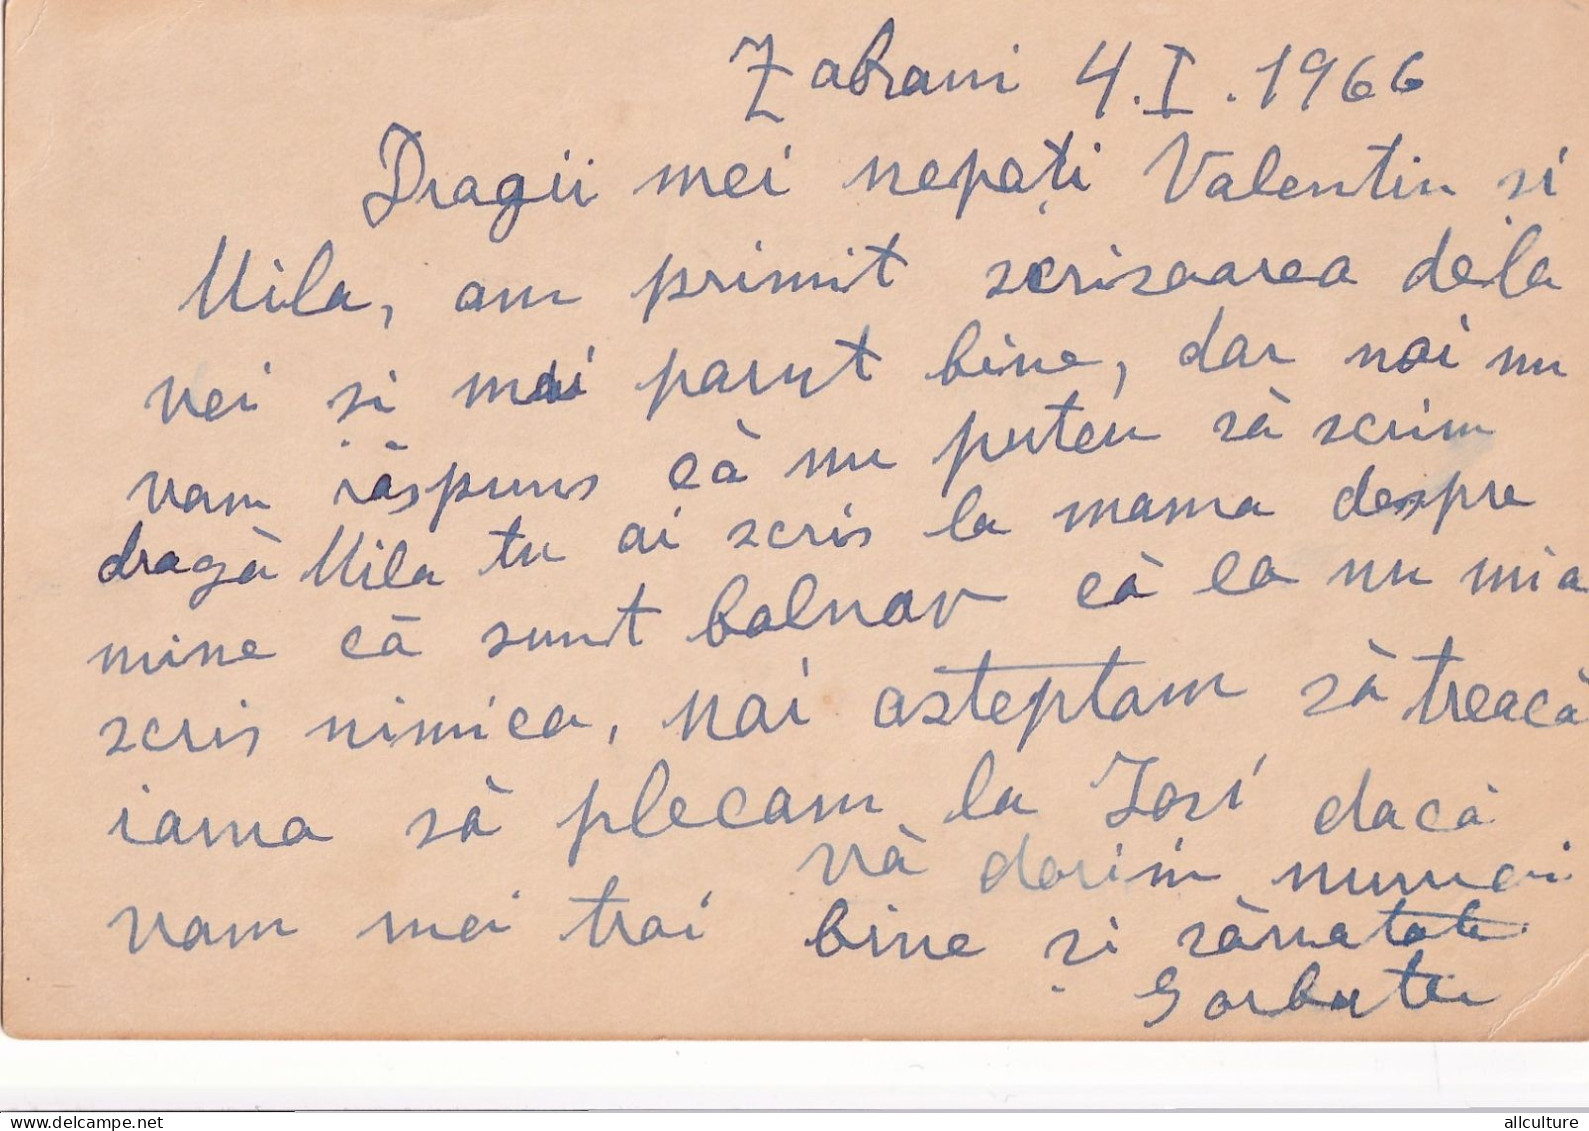 Zabrani 4.I.1966
Dragii mei nepoți Valentin si
Mila, am primit scrisoarea dela
voi si mai parut bine, dar noi nu
vam răspuns că nu putem să scrim
dragă Mila tu ai scris la mama despre
mine că sunt bolnav că ea nu mia
scris nimica, noi asteptam să treacă
iarna să plecam la Iasi dacă
vom mei trai vă dorim numai
bine și sănatate
www.delcampe.net
allculture